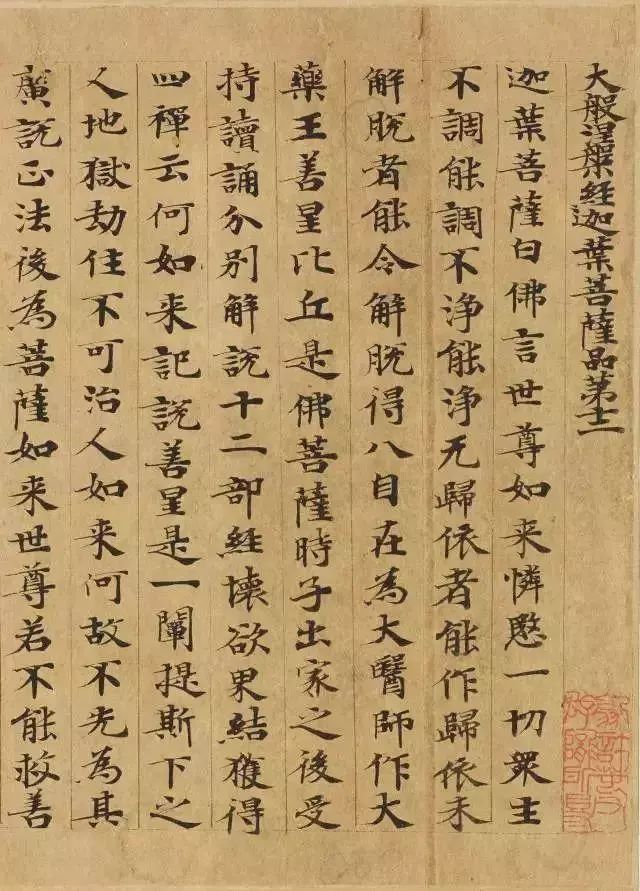 大般涅槃經迦葉菩薩品第十二
迦葉菩薩白佛言世尊如来憐愍一切衆生
不調能調不浄能浄无歸依者能作歸依未
解脱者能令解脱得八自在為大醫師作大
藥王善星比丘是佛菩薩時子出家之後受
持讀誦分別解説十二部經壞欲界結獲得
四禪云何如来記説善星是一闡提斯下之
人地獄劫住不可治人如来何故不先為其
廣説正法後為菩薩如来世尊若不能救善